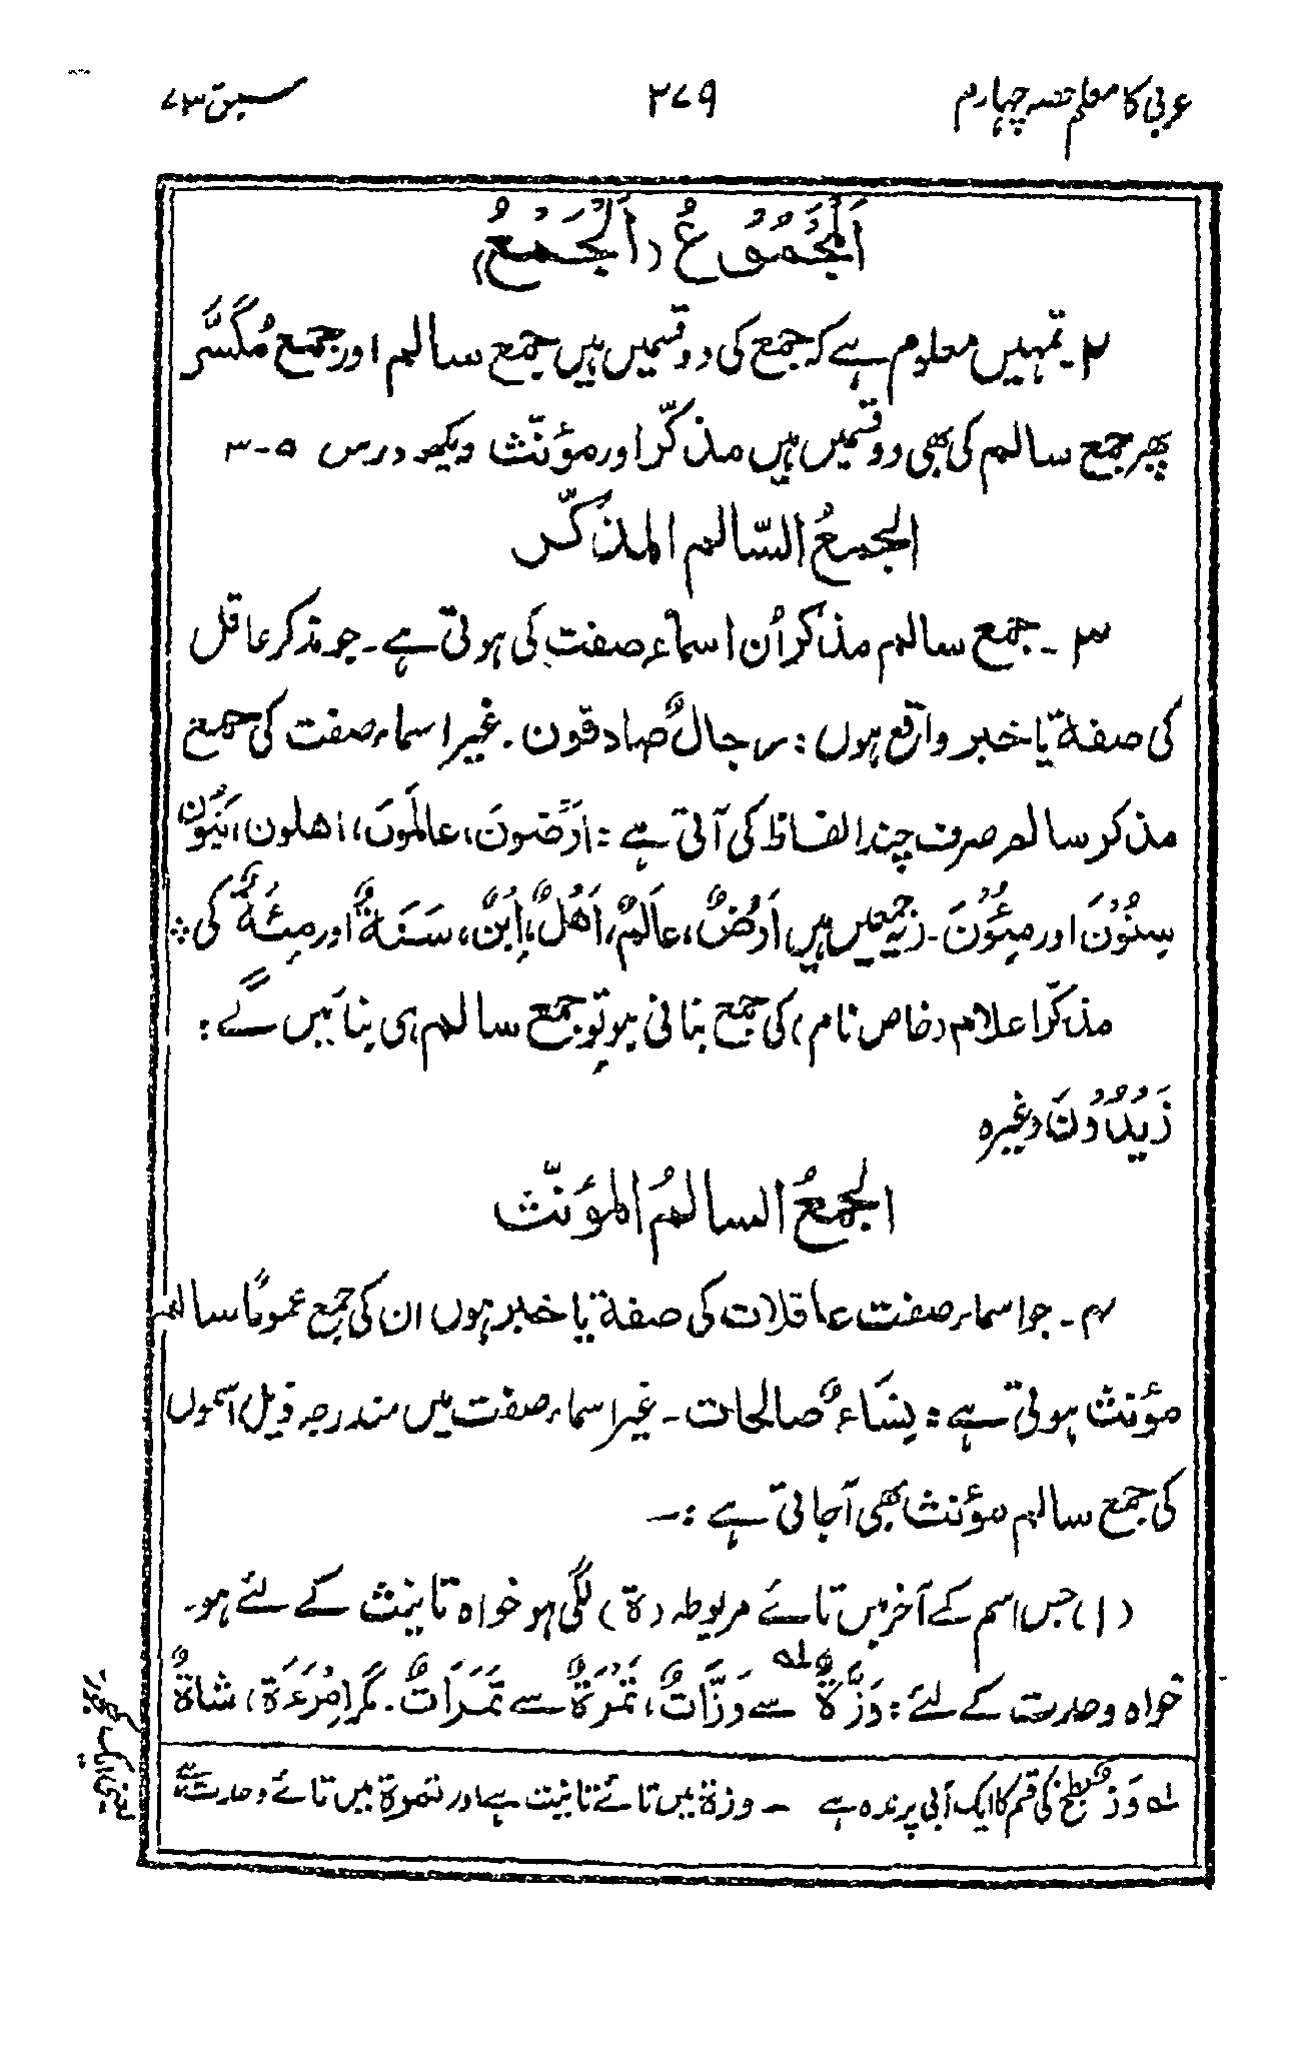 عربی کا معلم حصہ چہارم
۳۷۹
سبق ۷۳
اَلْجُمُوْعُ (اَلْجَمْعُ)
۲۔ تمہیں معلوم ہے کہ جمع کی دو قسمیں ہیں جمع سالم اور جمع مُکَسَّر
پھر جمع سالم کی بھی دو قسمیں ہیں مذکّر اور مؤنّث دیکھو درس ۵-۳
الجمعُ السّالم المذکّر
۳۔ جمع سالم مذکر اُن اسماء صفت کی ہوتی ہے۔ جو مذکر عاقل
کی صفۃ یا خبر واقع ہوں: رجالٌ صادقون۔ غیر اسماء صفت کی جمع
مذکر سالم صرف چند الفاظ کی آتی ہے: اَرَضُونَ، عالَمُونَ، اھلون، بَنُوْنَ
سِنُوْنَ اور مِئُوْنَ۔ یہ جمعیں ہیں اَرْضٌ، عَالَمٌ، اَھْلٌ، اِبْنٌ، سَنَةٌ اور مِئَةٌ کی ؞
مذکّر اعلام (خاص نام) کی جمع بنانی ہو تو جمع سالم ہی بنائیں گے:
زَیْدُوْنَ وغیرہ
الجمعُ السالمُ المؤنّث
۴۔ جو اسماء صفت عاقلات کی صفۃ یا خبر ہوں ان کی جمع عمومًا سالم
مؤنث ہوتی ہے: نِسَاءٌ صالحات۔ غیر اسماء صفت میں مندرجہ ذیل اسموں
کی جمع سالم مؤنث بھی آجاتی ہے :۔
(۱) جس اسم کے آخر میں تائے مربوطہ (ة) لگی ہو خواہ تانیث کے لئے ہو۔
خواہ وحدت کے لئے: وَزَّةٌ لہ سے وَزَّاتٌ، تَمْرَةٌ سے تَمَرَاتٌ۔ مگر اِمْرَءَة، شَاةٌ
لہ وَز بطخ کی قسم کا ایک آبی پرندہ ہے ۔ وزة میں تائے تانیث ہے اور تمرة میں تائے وحدت ہے
یعنی ایک کھجور۔